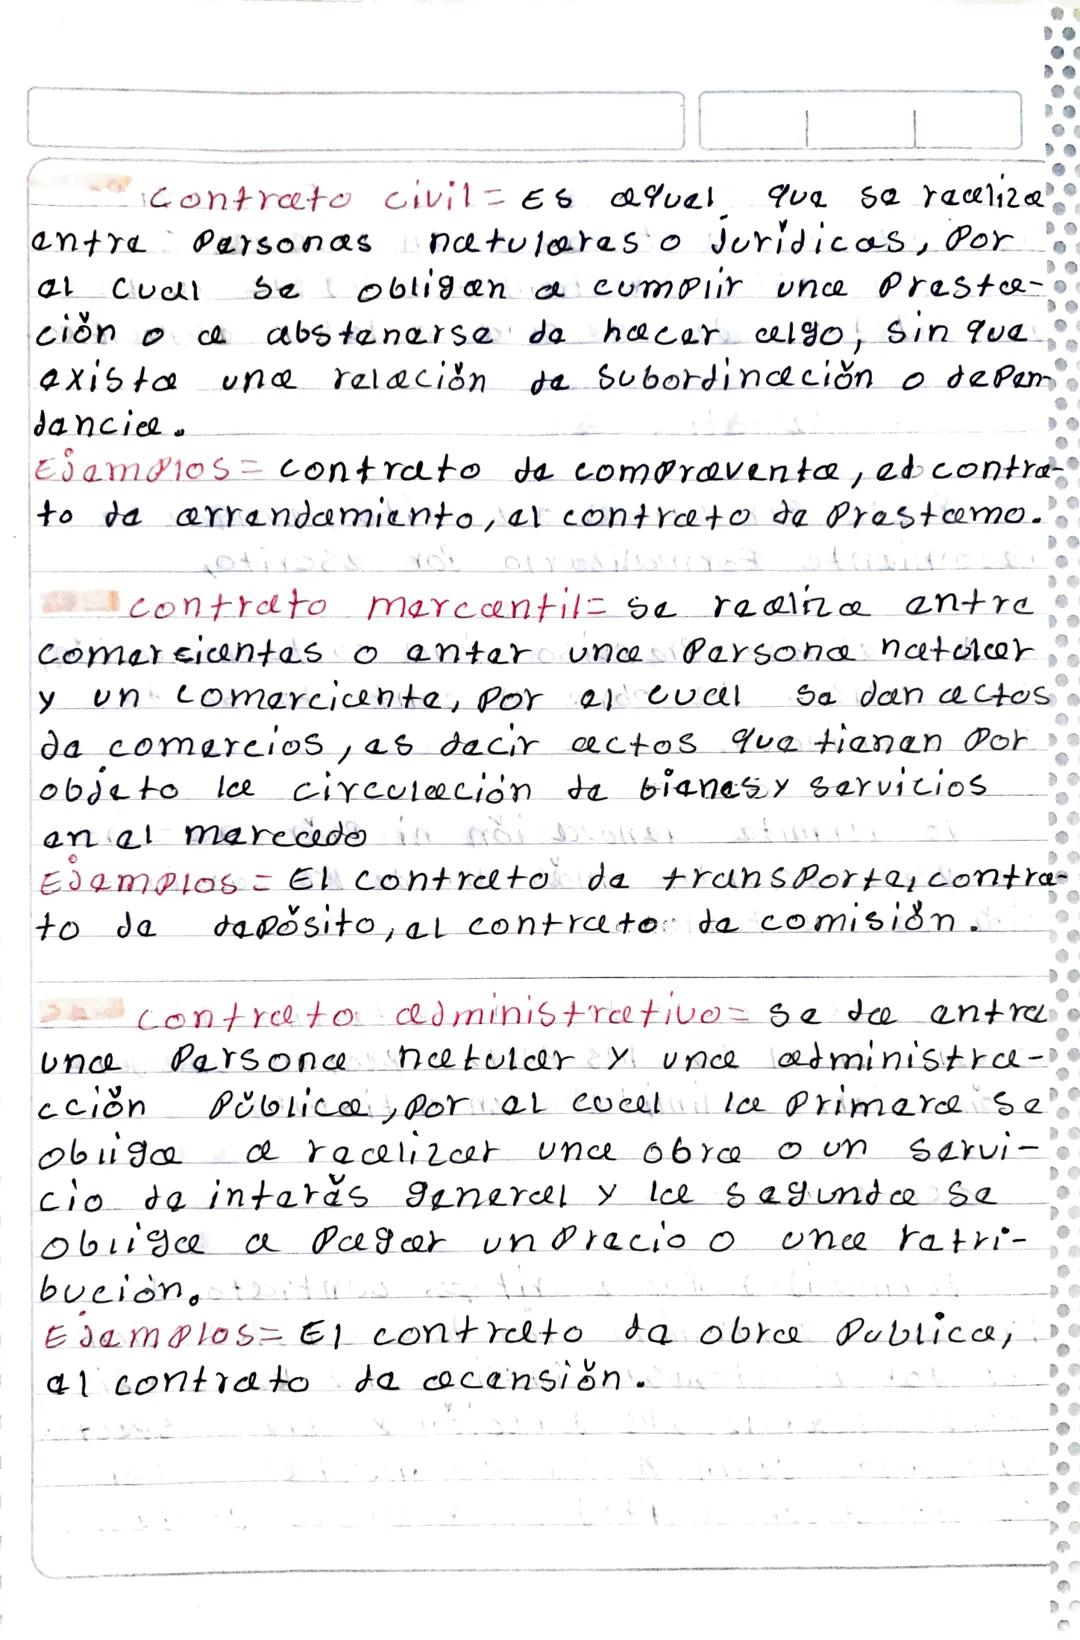 Contrato civil = Es aquel que se realiza
entre Personas naturales o Jurídicas, Por
el cual se obligan a cumplir una Presta-
ción o a abstenerse de hacer algo, sin que
exista una relación de subordinación o depen
dancia.
Ejemplos = contrato de compraventa, el contra-
to de arrendamiento, el contrato de Prestamo.
contrato mercantil = se realiza entre
comersientes o enter una Persona natular
y un comerciente, por el cual se dan actos
de comercios, es decir actos que tienen Por
objeto la circulación de bienes y servicios
en el marecado
Ejemplos = El contrato de transporte, contra-
to de depósito, el contrato de comisión.
contrato administrativo = se da entre
una Persona natular y una administra-
cción Pública, por el cual la Primera se
obliga a raealizar una obra o un servi-
cio de interés general y la segunda se
obliga a Pagar un Precio o una retri-
bución.
Ejemplos = El contrato de obra Publica,
el contrato de acensión.